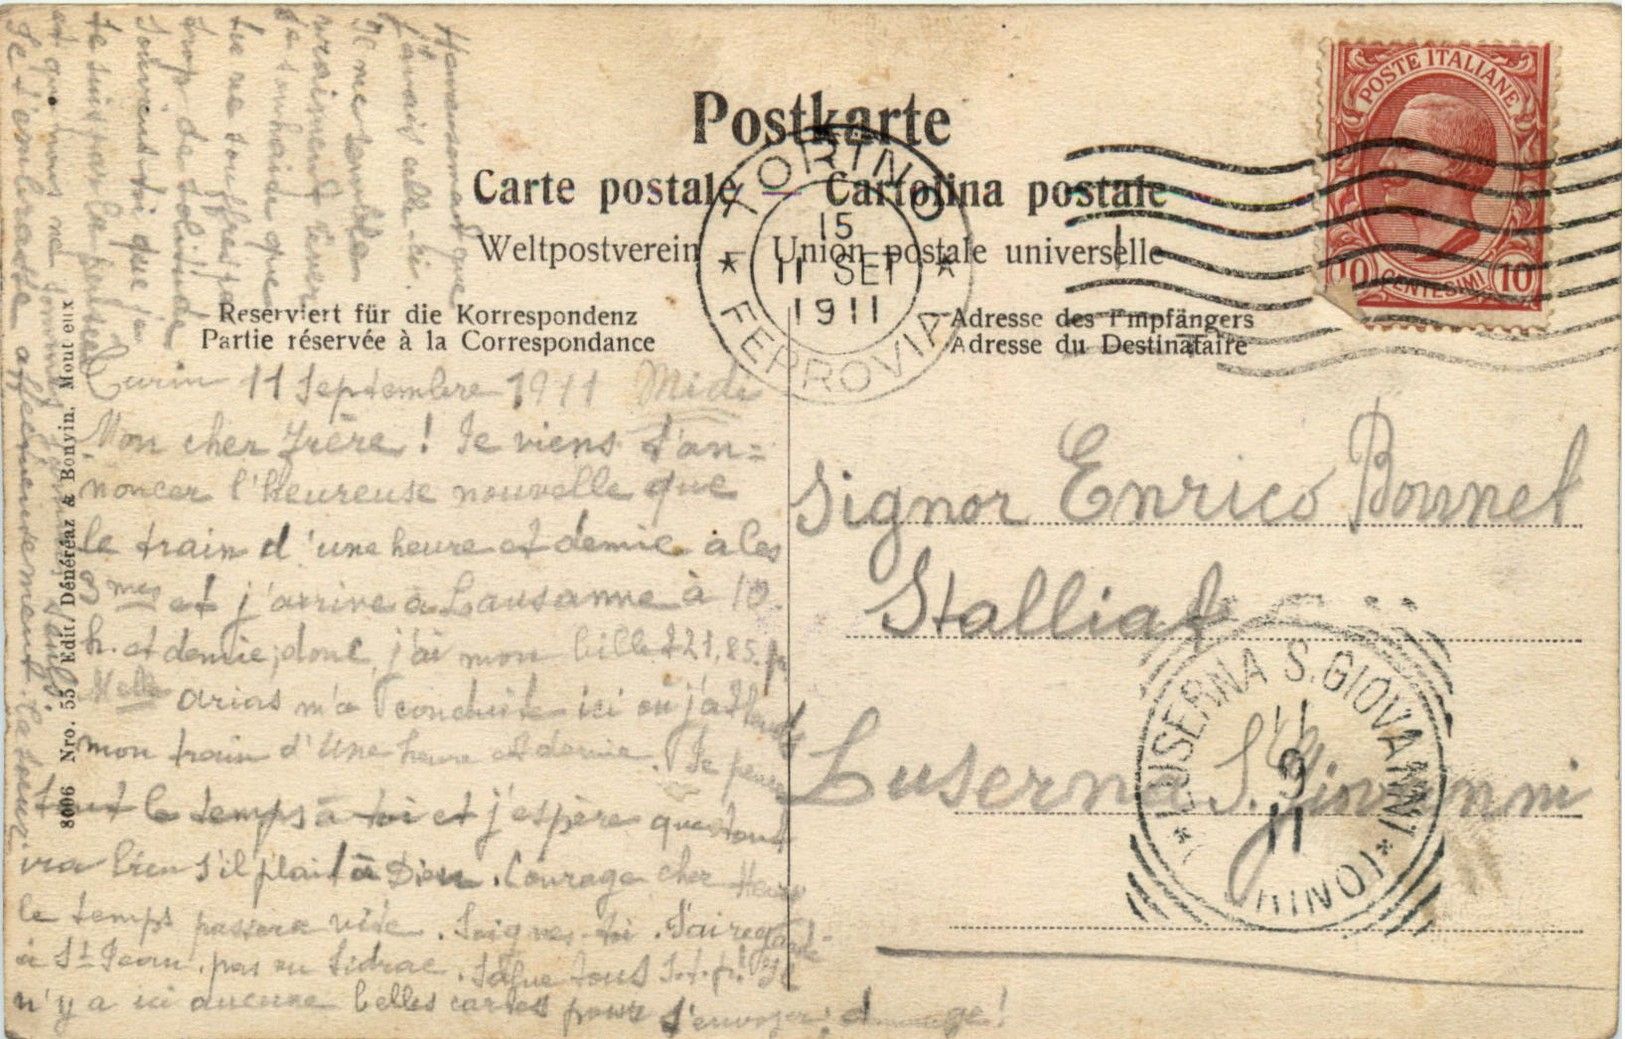 Postkarte
Carte postale – Cartolina postale
Weltpostverein Union postale universelle
Reserviert für die Korrespondenz
Partie réservée à la Correspondance
Adresse des Empfängers
Adresse du Destinataire
POSTE ITALIANE
10 CENTESIMI 10
TORINO
15
11 SET
1911
* FERROVIA *
Turin 11 Septembre 1911 Midi
Mon cher frère! Je viens t'an=
noncer l'heureuse nouvelle que
le train d'une heure et demie a les
3mes et j'arrive à Lausanne à 10
h. et demie; donc j'ai mon billet 21,85 fr
Melle arias m'a conduite ici où j'attends
mon train d'une heure et demie. Je pense
tout le temps à toi et j'espère que tout
ira bien s'il plait à Dieu. Courage cher Henri
le temps passera vite. Soigne-toi. J'ai regardé
à St Jean, pas vu Sidrac. Salue tous s.t.p! Il
n'y a ici aucune belles cartes pour t'envoyer; dommage!
Heureusement que
j'avais celle-ci.
Il me semble
vraiment rêver
Je souhaite que
tu ne souffres pas
trop de solitude
Souviens-toi que je
te suis par la pensée
et que nous ne sommes jamais seuls.
Je t'embrasse affectueusement. Ta soeur
8006 Nro. 55 Edit. Dénéréaz & Bonvin, Montreux
Signor Enrico Bonnet
Stalliat
Luserna S. Giovanni
* LUSERNA S. GIOVANNI *
(TORINO)
11
9
11